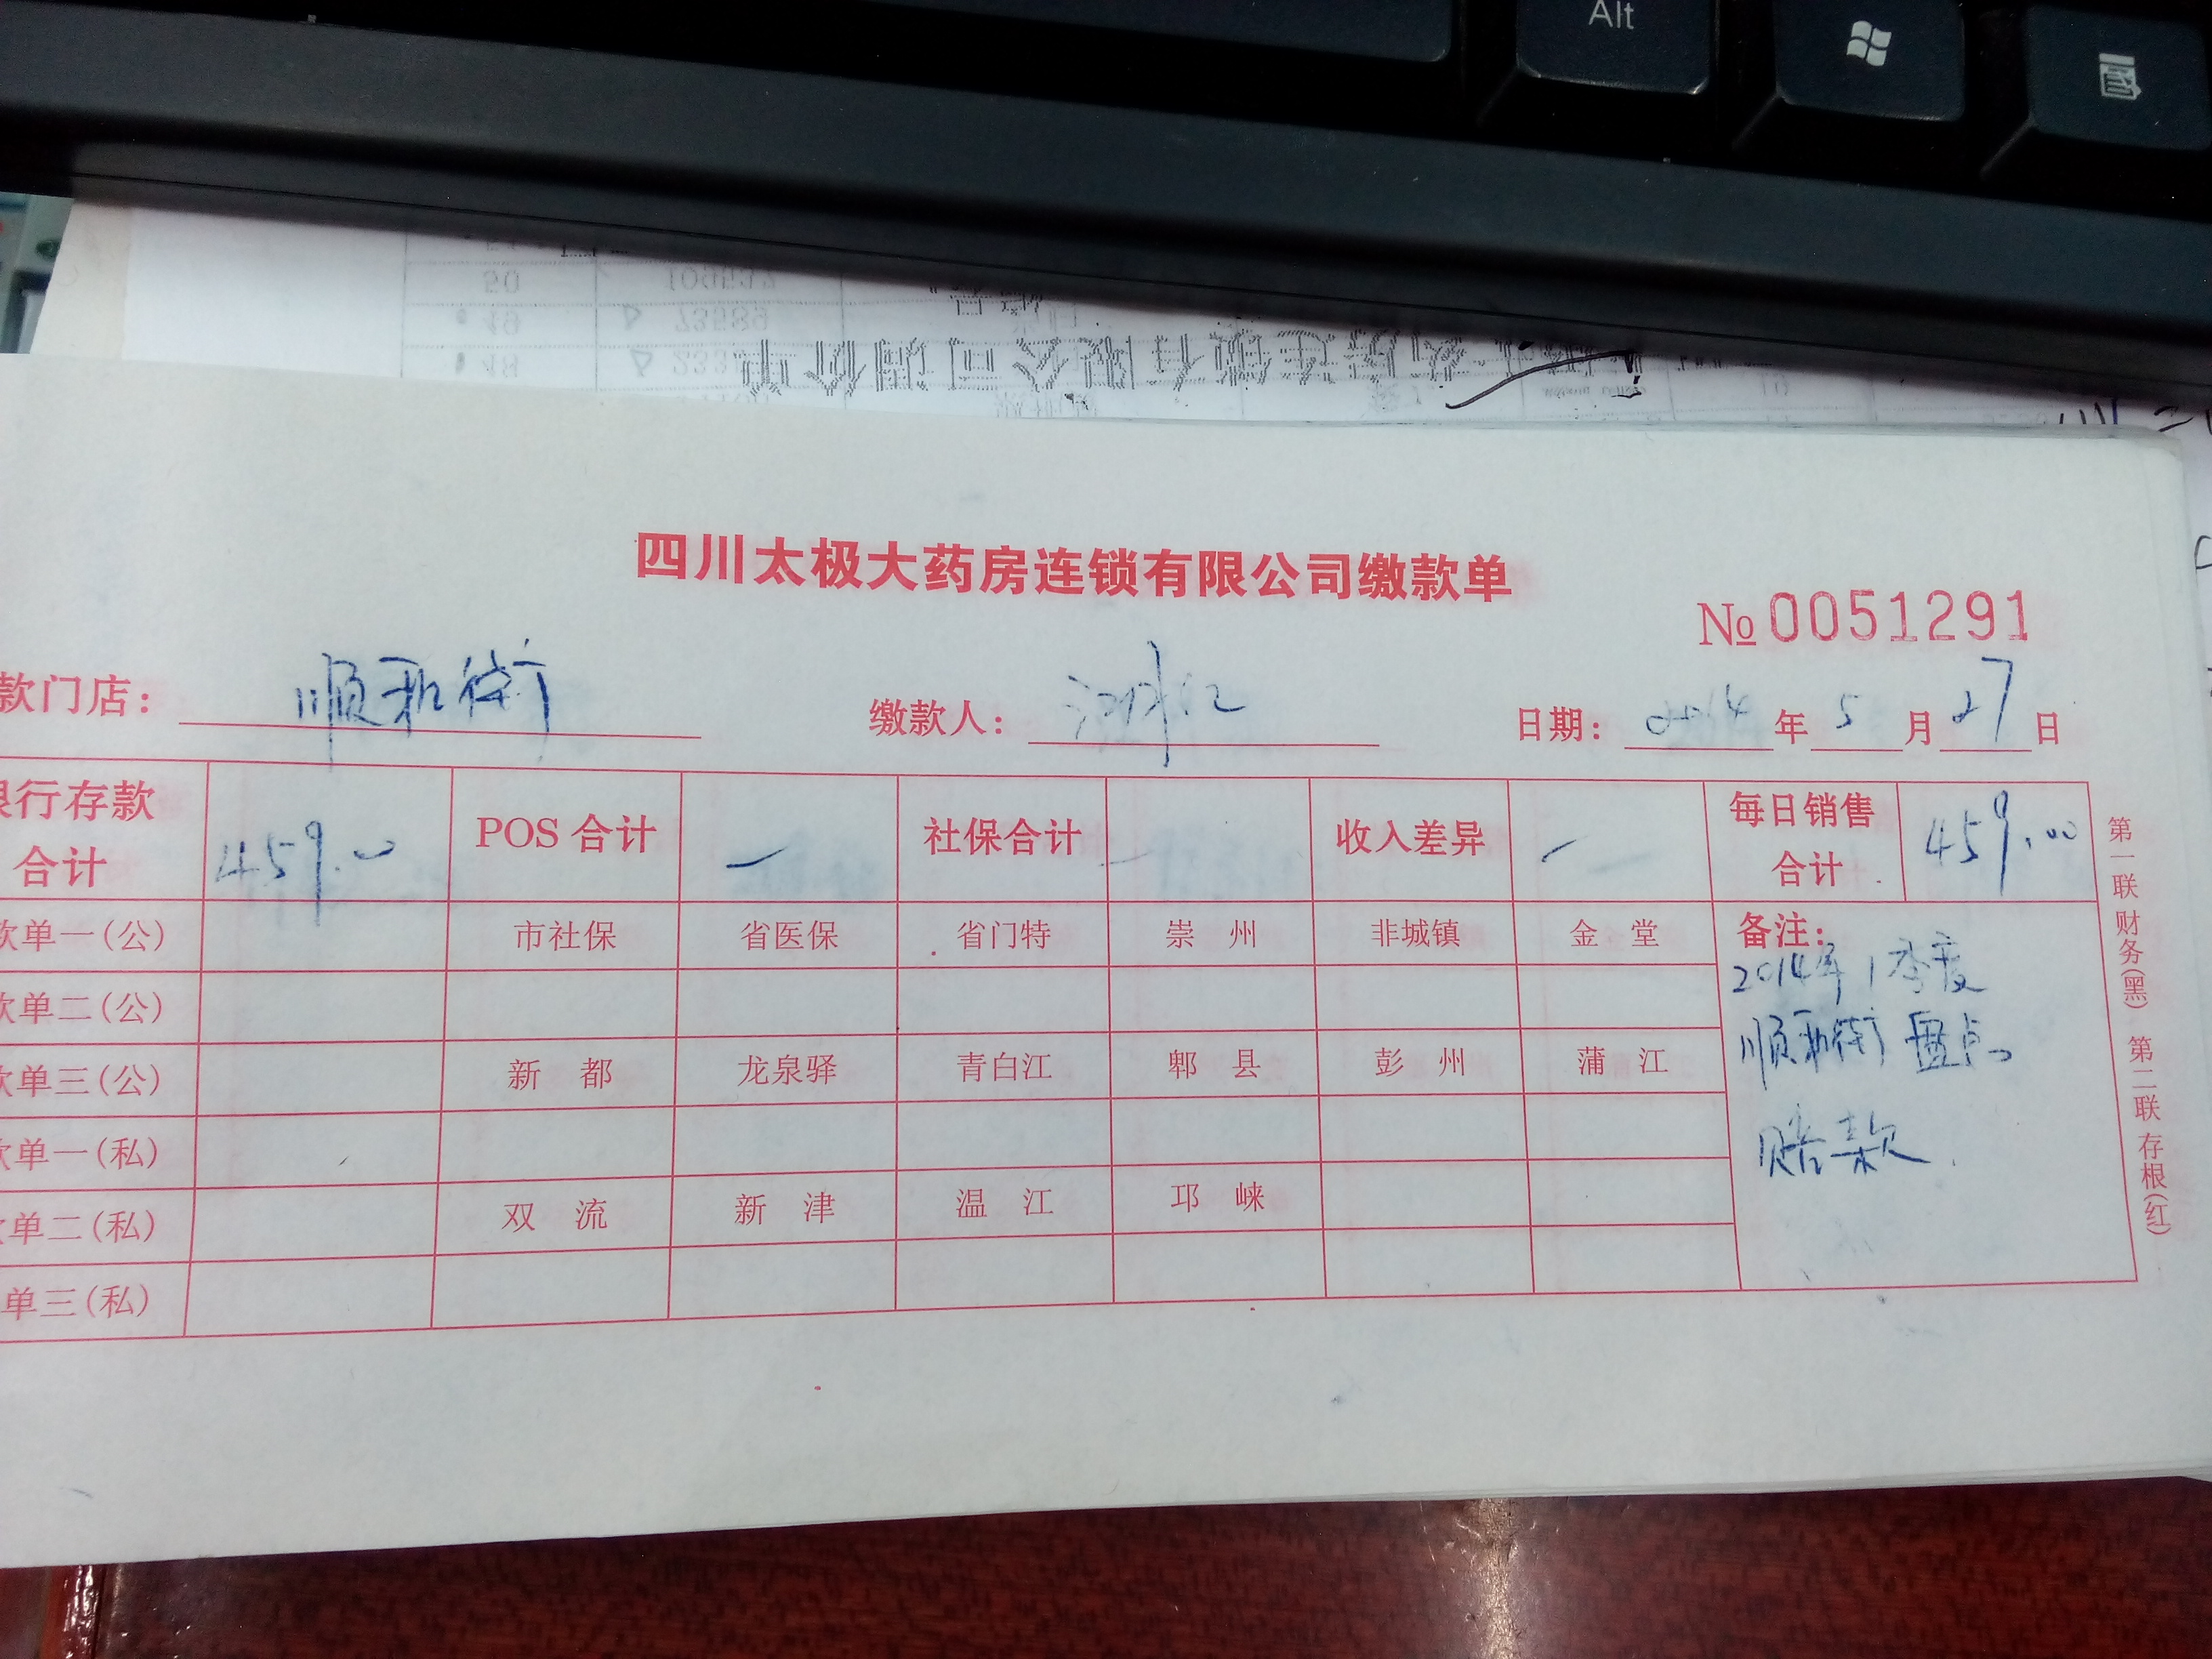 Alt
四川太极大药房连锁有限公司缴款单
№0051291
款门店： 顺和街 缴款人： 日期： 2014 年 5 月 27 日
行存款合计 459.00 POS 合计 — 社保合计 — 收入差异 — 每日销售合计 459.00
款单一(公) 市社保 省医保 省门特 崇 州 非城镇 金 堂
备注：
2014年1季度
顺和街盘点
赔款
款单二(公)
款单三(公) 新 都 龙泉驿 青白江 郫 县 彭 州 蒲 江
款单一(私)
单二(私) 双 流 新 津 温 江 邛 崃
单三(私)
第一联 财务(黑) 第二联 存根(红)
50
49 73589
48